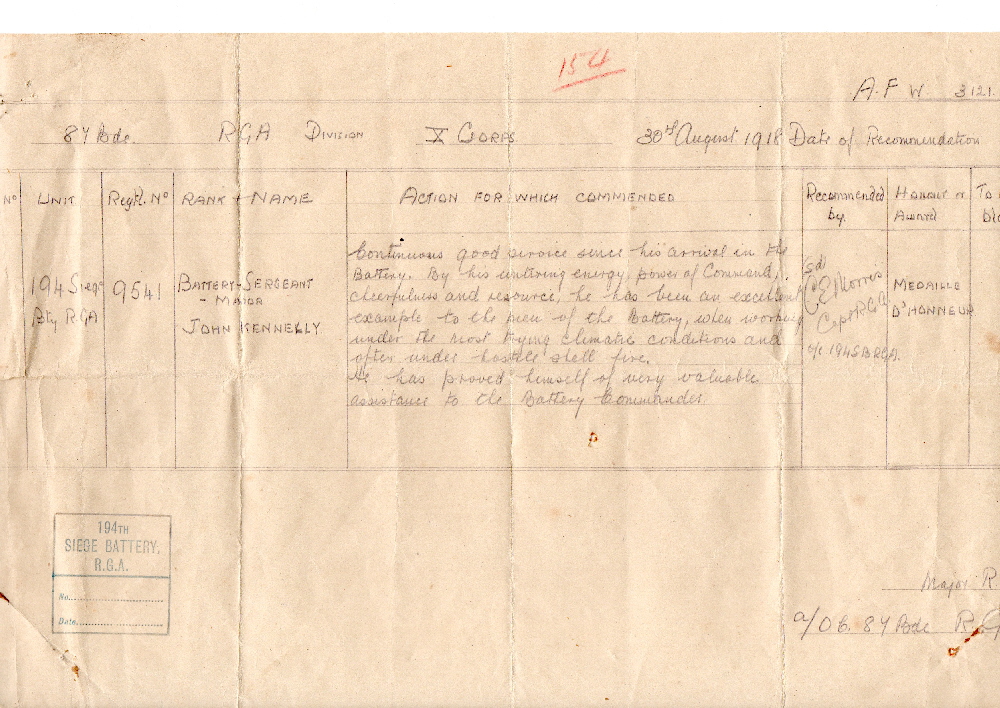 154
A.F W. 3121.
87 Bde. RGA DIVISION X CORPS 30th August 1918 Date of Recommendation
No UNIT Regtl. No RANK & NAME ACTION FOR WHICH COMMENDED Recommended by. HONOUR or Award To
194 Siege Bty RGA
9541
BATTERY-SERGEANT
- MAJOR
JOHN KENNELLY
Continuous good service since his arrival in the
Battery. By his untiring energy, power of Command,
cheerfulness and resource, he has been an excellent
example to the men of the Battery, when working
under the most trying climatic conditions and
often under hostile shell fire.
He has proved himself of very valuable
assistance to the Battery Commander.
Sd/
C E Morris
Capt RGA
o/c 194 S B RGA.
MEDAILLE
D'HONNEUR
194TH
SIEGE BATTERY,
R.G.A.
No.
Date.
Major R
a/O C. 87 Bde R.G